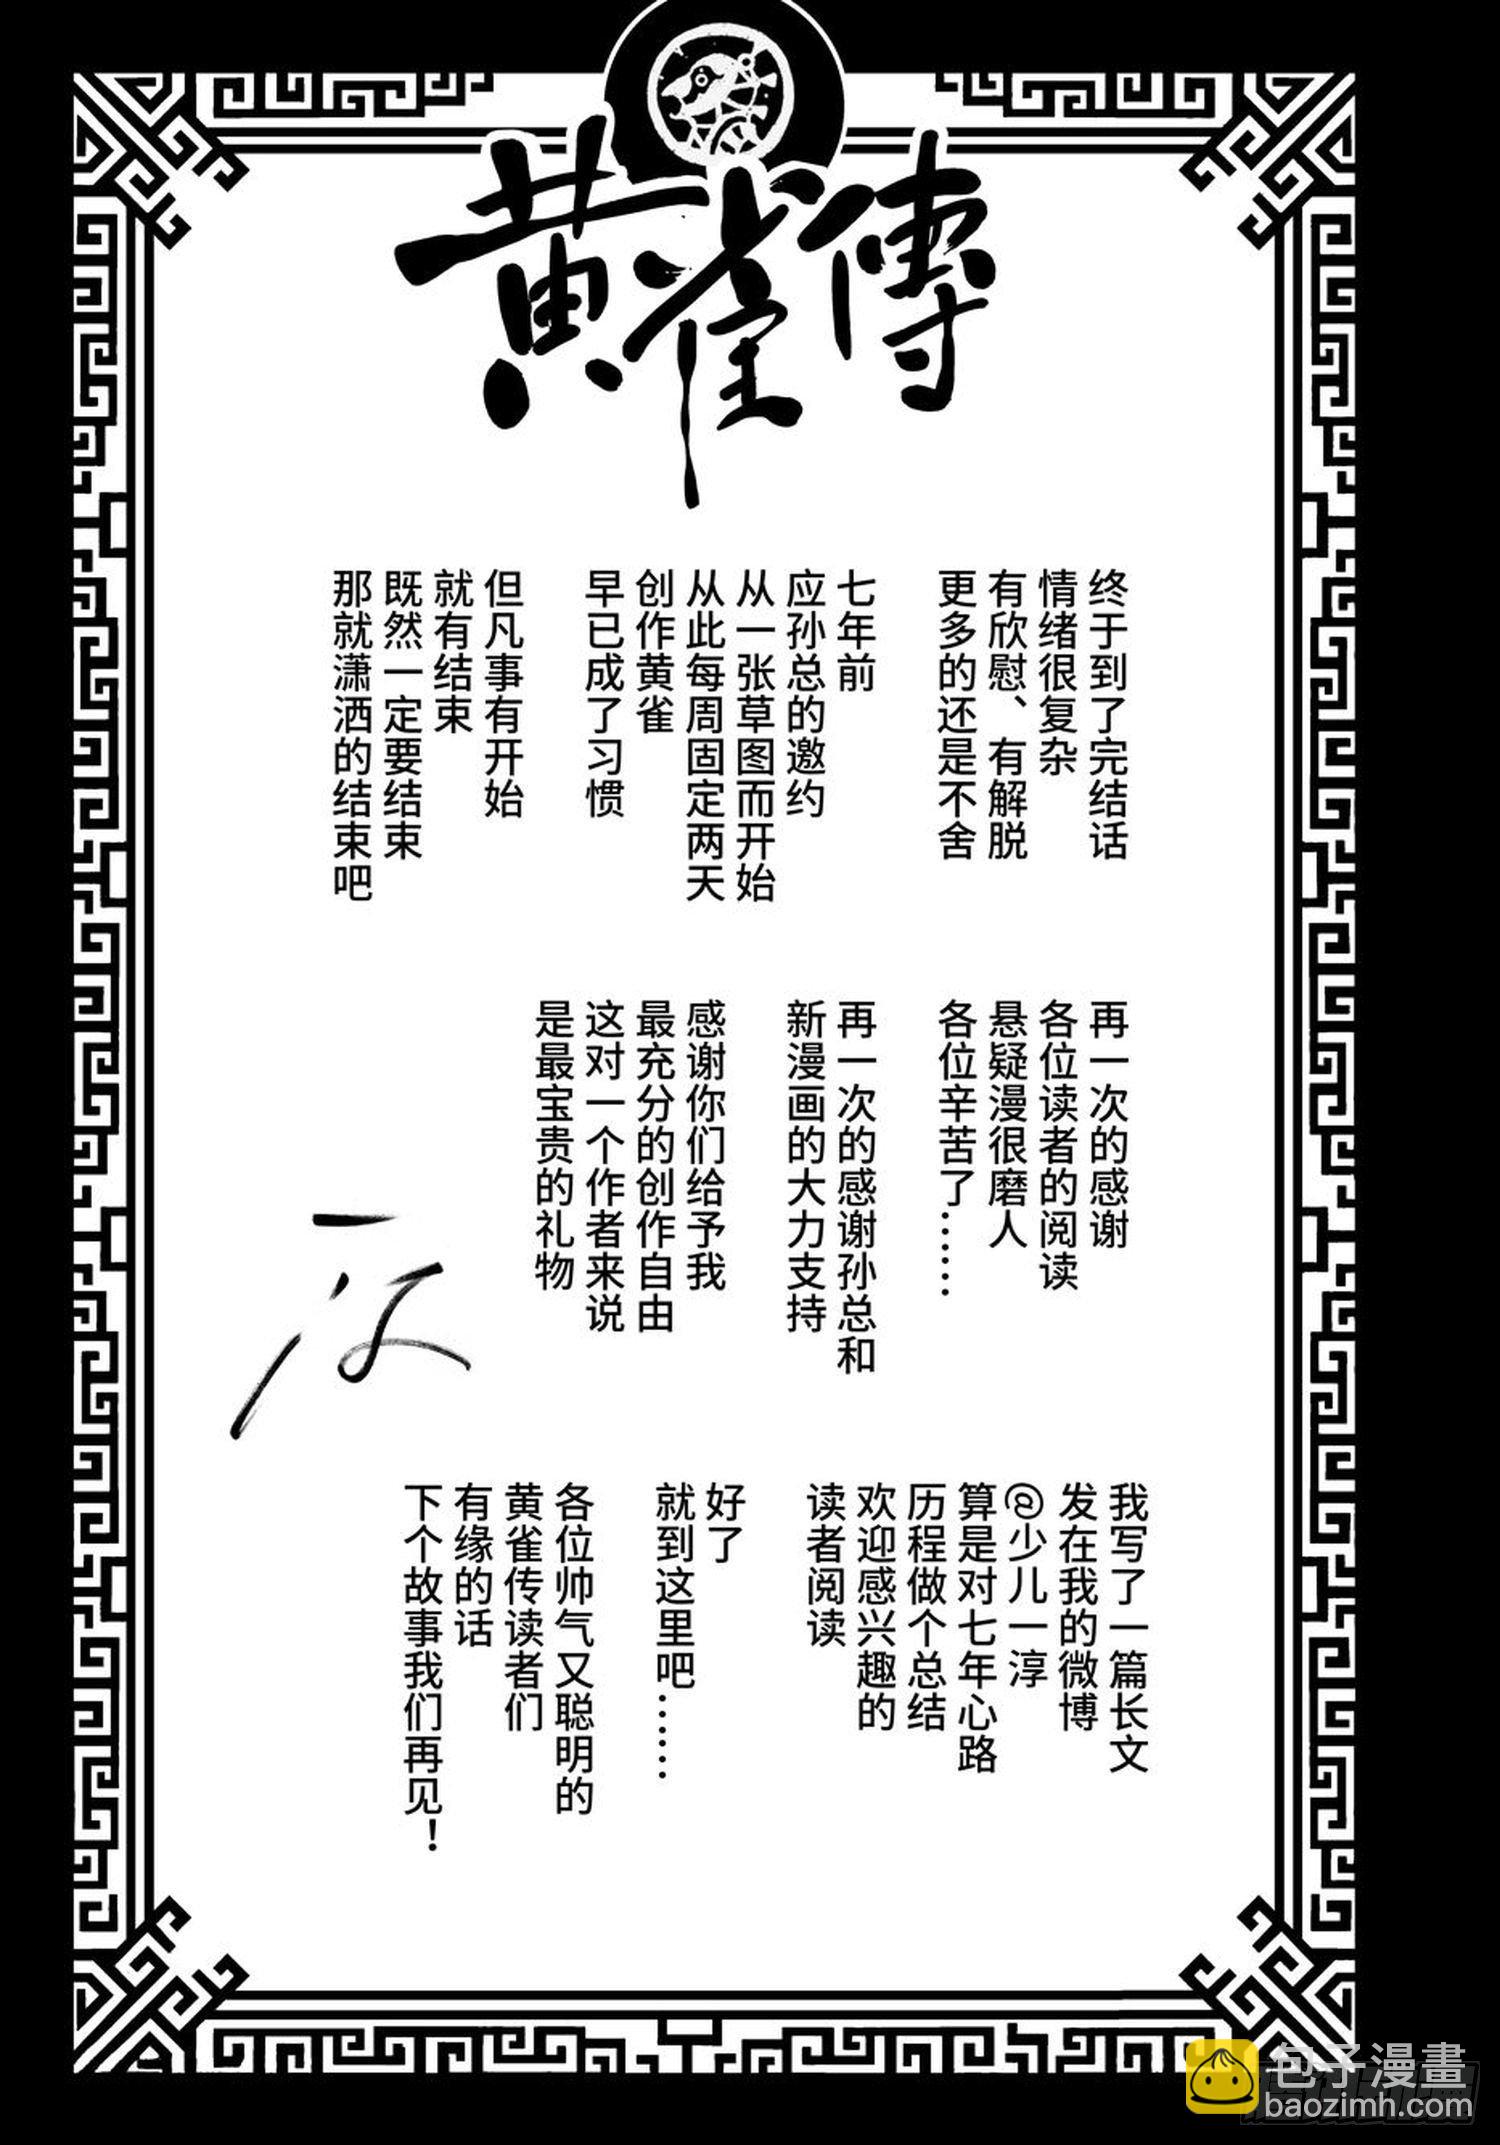 黄雀傳
终于到了完结话
情绪很复杂
有欣慰、有解脱
更多的还是不舍
七年前
应孙总的邀约
从一张草图而开始
从此每周固定两天
创作黄雀
早已成了习惯
但凡事有开始
就有结束
既然一定要结束
那就潇洒的结束吧
再一次的感谢
各位读者的阅读
悬疑漫很磨人
各位辛苦了……
再一次的感谢孙总和
新漫画的大力支持
感谢你们给予我
最充分的创作自由
这对一个作者来说
是最宝贵的礼物
我写了一篇长文
发在我的微博
@少儿一淳
算是对七年心路
历程做个总结
欢迎感兴趣的
读者阅读
好了
就到这里吧……
各位帅气又聪明的
黄雀传读者们
有缘的话
下个故事我们再见！
包子漫畫
baozimh.com